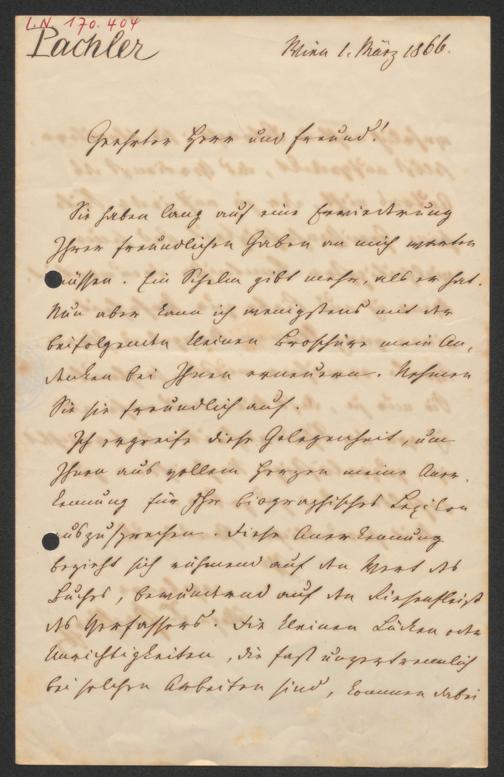 I.N. 170.404
Pachler
Wien 1. März 1866.
Geehrter Herr und Freund!
Sie haben lang auf eine Erwiederung
Ihrer freundlichen Gaben an mich warten
müssen. Ein Schelm gibt mehr, als er hat.
Nun aber kann ich wenigstens mit der
beifolgenden kleinen Broschüre mein An-
denken bei Ihnen erneuern. Nehmen
Sie sie freundlich auf.
Ich ergreife diese Gelegenheit, um
Ihnen aus vollem Herzen meine Aner-
kennung für Ihr biographisches Lexikon
auszusprechen. Diese Anerkennung
bezieht sich rühmend auf den Wert des
Buches, bewundernd auf den Riesenfleiß
des Verfassers. Die kleinen Lücken oder
Unrichtigkeiten, die fast unzertrennlich
bei solchen Arbeiten sind, kommen dabei